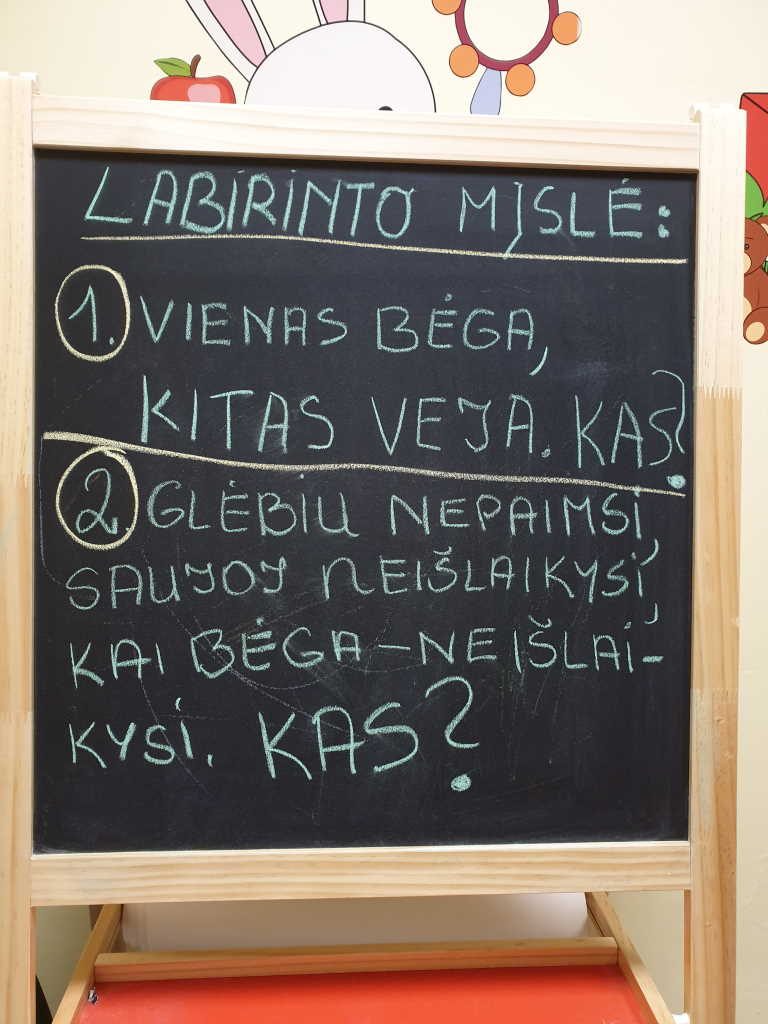 LABIRINTO MĮSLĖ:
1. VIENAS BĖGA,
KITAS VEJA. KAS?
2. GLĖBIU NEPAIMSI,
SAUJOJ NEIŠLAIKYSI,
KAI BĖGA-NEIŠLAI-
KYSI. KAS?